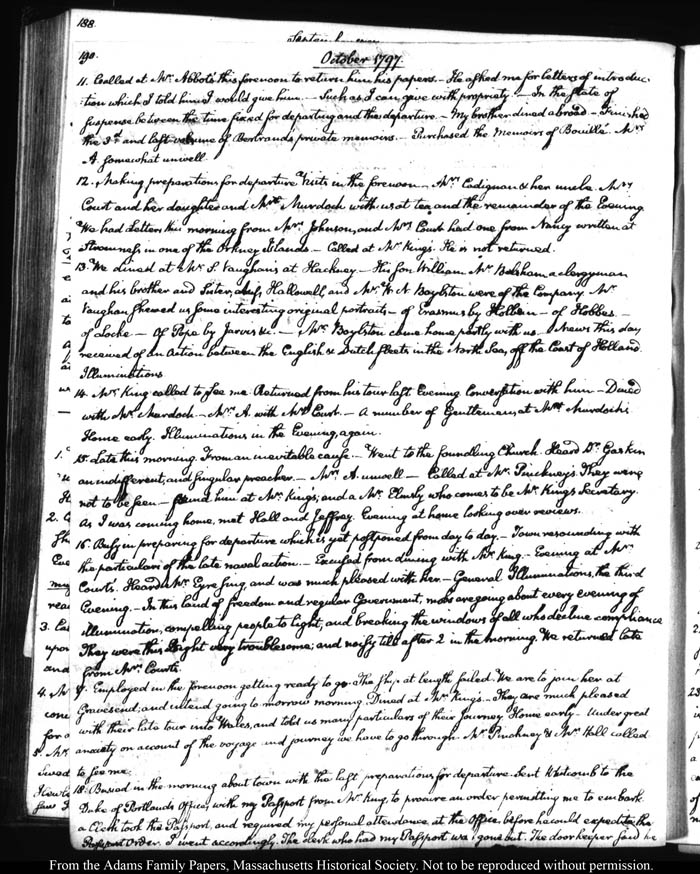 188.
190.
October 1797.
11. Called at Mr. Abbots this forenoon to return him his papers.— He asked me for letters of introduc-
tion which I told him I would give him.— Such as I can give with propriety.— In the state of
suspense between the time fixed for departing and the departure.— My brother dined abroad.— Finished
the 3d. and last volume of Bertrand's private memoirs.— Purchased the Memoirs of Bouillé. Mrs.
A. somewhat unwell.
12. Making preparations for departure. Visits in the forenoon. Mrs. Cadignan & her uncle. Mrs.
Court and her daughter and Mrs. Murdoch with us at tea and the remainder of the Evening
We had Letters this morning from Mrs. Johnson, and Mrs. Court had one from Nancy written at
Stromness, in one of the Orkney Islands — Called at Mr. King's. He is not returned.
13. We dined at Mr. S. Vaughan's at Hackney — His son William, Mr. Belsham a clergyman
and his brother and Sister, Hallowell, and Mr. W. N. Boylston were of the Company. Mr.
Vaughan shewed us some interesting original portraits — of Erasmus by Holbein — of Hobbes —
of Locke — Of Pope by Jarvis &c. — Mr. Boylston came home partly with us. News this day
received of an Action between the English & Dutch fleets in the North Sea, off the Coast of Holland.
Illuminations
14. Mr. King called to see me. Returned from his tour last Evening. Conversation with him — Dined
with Mr. Murdoch — Mrs. A. with Mrs. Court. — A number of Gentlemen at Mr. Murdoch's
Home early. Illuminations in the Evening, again.
15. Late this morning. From an inevitable cause. Went to the foundling Church. Heard Dr. Gaskin
an indifferent, and singular preacher.— Mrs. A. unwell — Called at Mr. Pinckney's. They were
not to be seen — found him at Mr. Kings, and a Mr. Elmsly who comes to be Mr. King's Secretary.
As I was coming home, met Hall and Jeffrey. Evening at home looking over reviews.
16. Busy in preparing for departure which is yet postponed from day to day — Town resounding with
the particulars of the late naval action.— Excused from dining with Mr. King — Evening at Mr.
Courts. Heard Mrs. Eyre sing and was much pleased with her — General Illuminations, the third
Evening. — In this land of freedom and regular Government, mobs are going about every evening of
illumination, compelling people to light, and breaking the windows of all who decline compliance
They were this Night very troublesome, and noisy till after 2 in the morning. We returned late
from Mrs. Courts
17. Employed in the forenoon getting ready to go. The ship at length sailed. We are to join her at
Gravesend, and intend going to morrow morning. Dined at Mr. King's. They are much pleased
with their late tour into Wales, and told us many particulars of their journey. Home early. Under great
anxiety on account of the voyage and journey we have to go through. Mr. Pinckney & Mr. Hall called
to see me.
18. Busied in the morning about town with the last preparations for departure. Sent Whitcomb to the
Duke of Portlands Office, with my Passport from Mr. King, to procure an order permitting me to embark.
a Clerk took the Passport, and required my personal attendance at the Office, before he could expedite the
Order. I went accordingly. The clerk who had my Passport was gone out. The door keeper said he
From the Adams Family Papers, Massachusetts Historical Society. Not to be reproduced without permission.